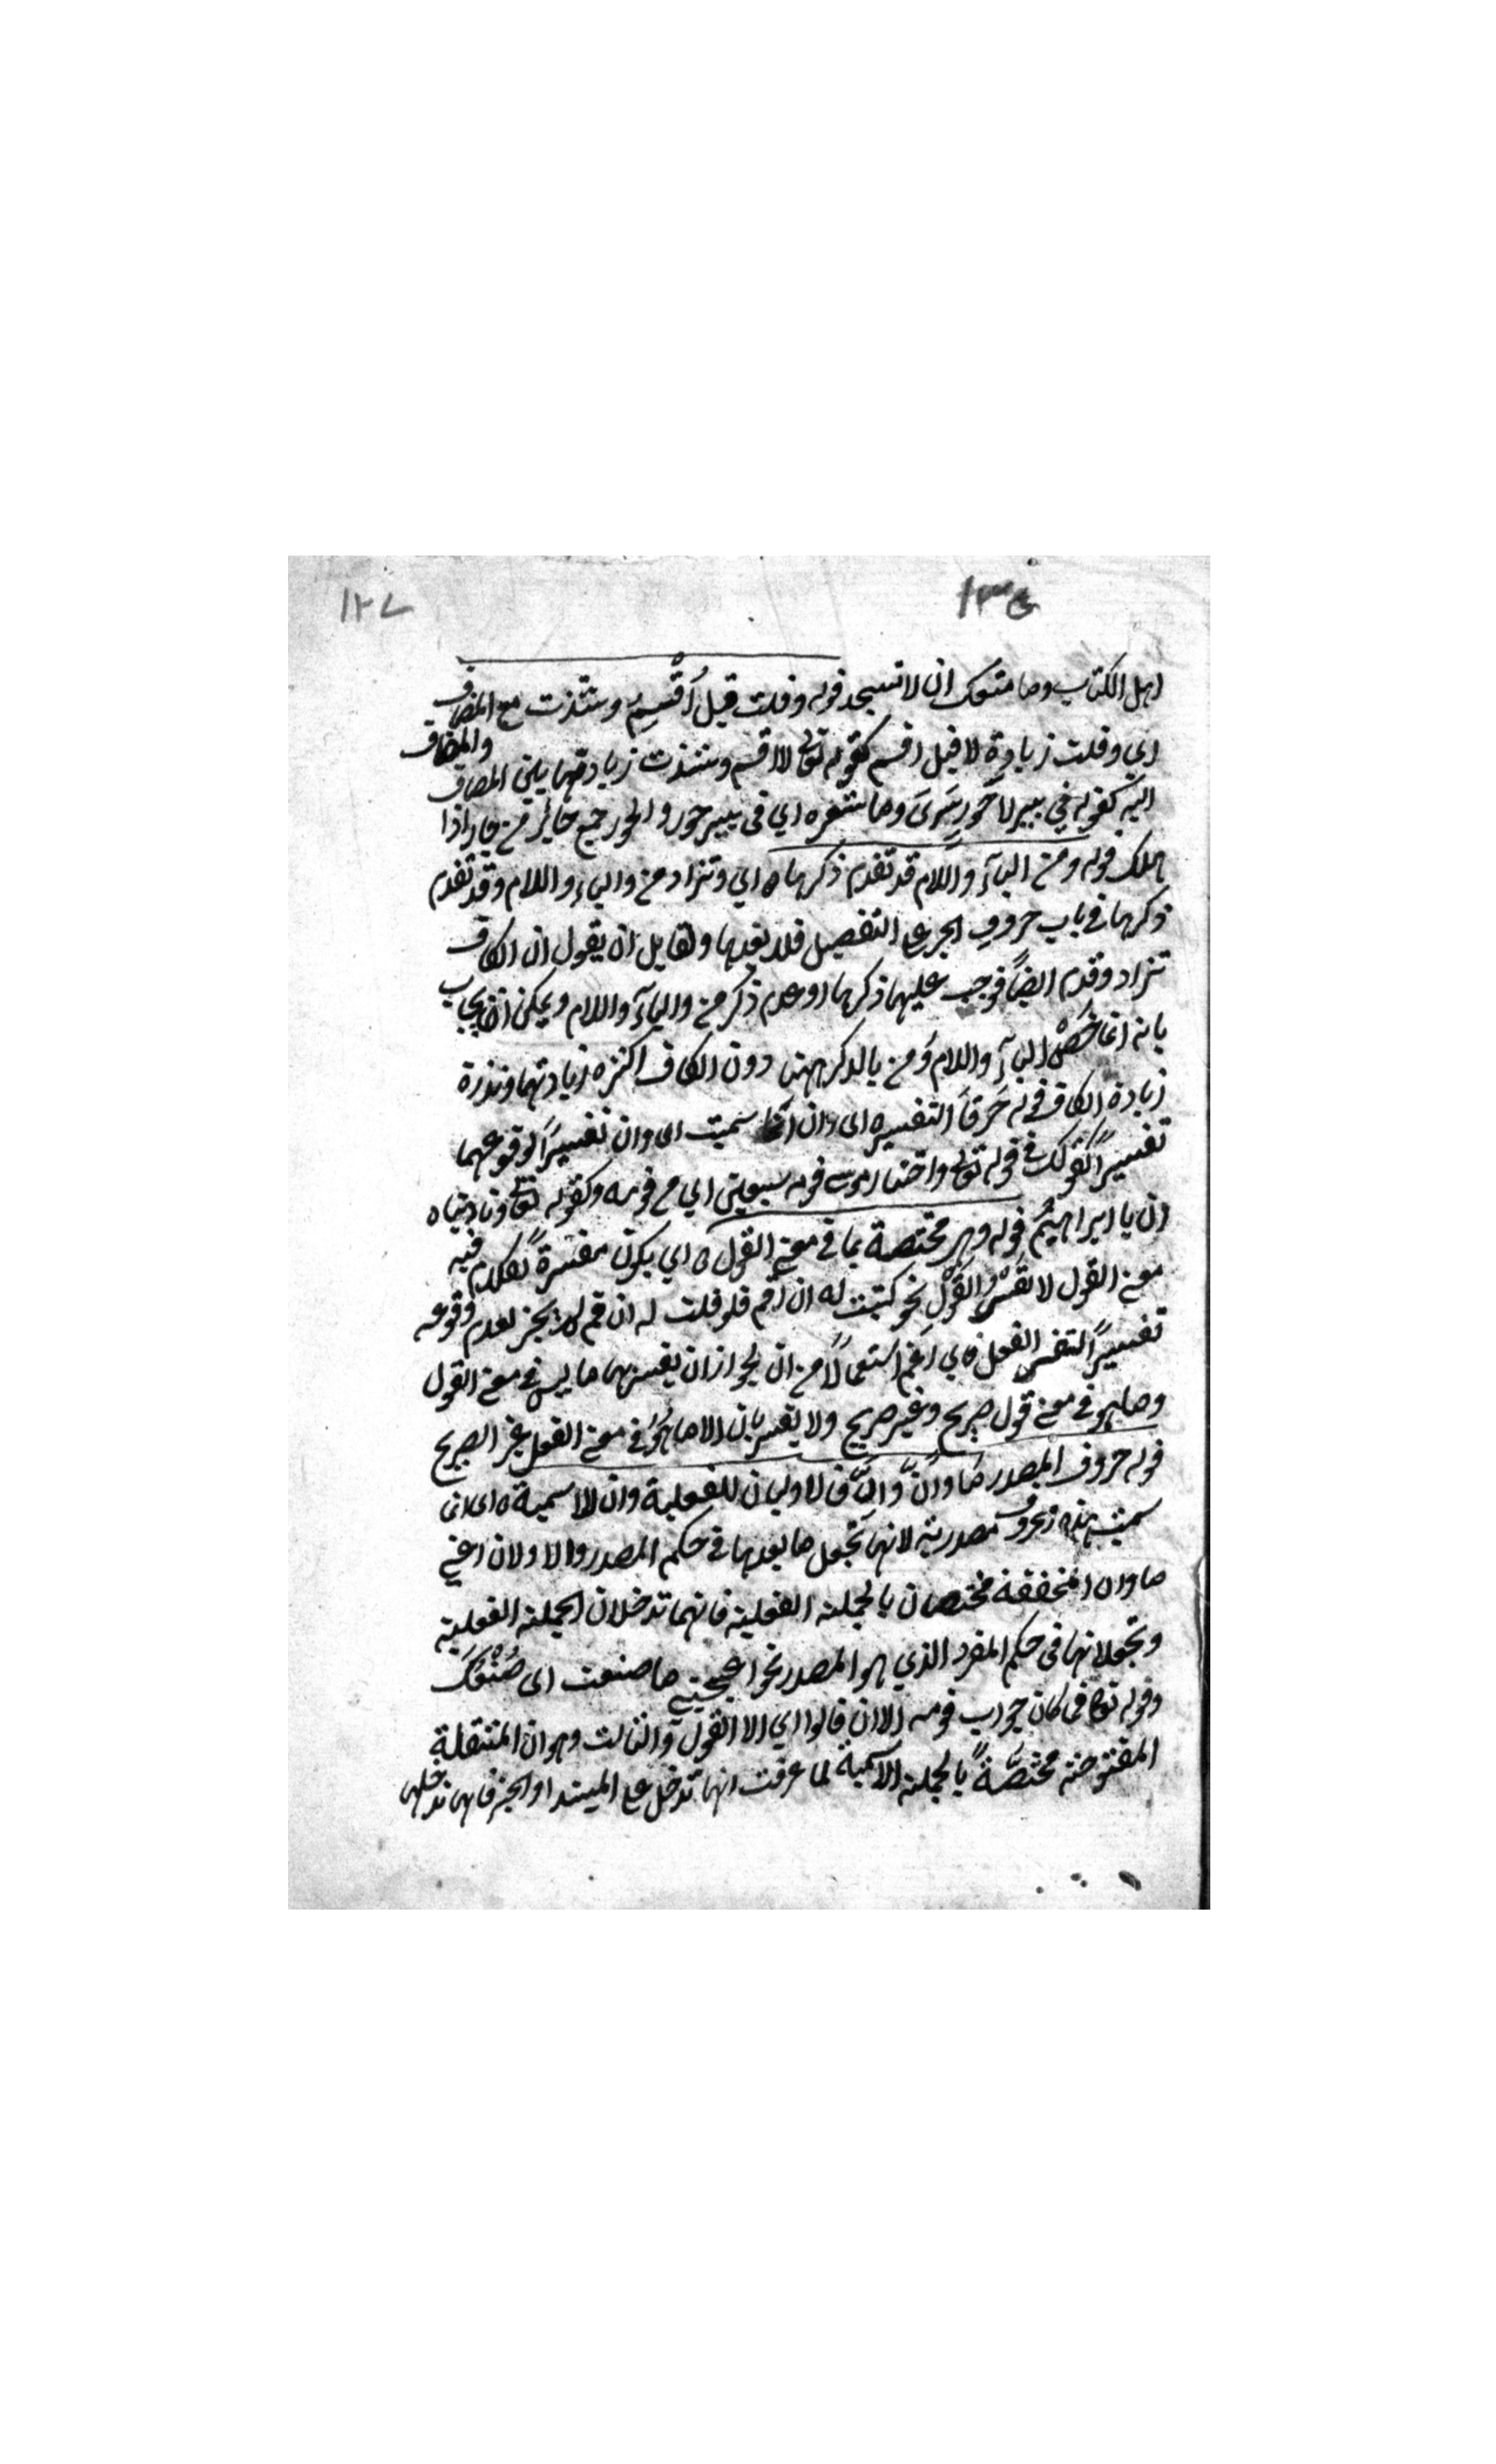 ١٢٧
١٣٥
اهل الكتاب وما منعك ان لا تسجد قوله وقلت قبل اُقْسِمُ وشذت مع المضاف
اي وقلت زيادة لا قبل اقسم كقوله تعالى لا اقسم وشذت زيادتها بين المضاف والمضاف
اليه كقوله في بير لا حَورٍ سَرَى وما شعره اي في بير حور والحور جمع حائر من حار اذا
هلك قوله ومن الباء واللام قد تقدم ذكرها ه اي وتزاد من والباء واللام وقد تقدم
ذكرها في باب حروف الجر على التفصيل فلا يعيدها ولقايل ان يقول ان الكاف
تزاد وقدم ايضاً فوجب عليها ذكرها او عدم ذكر من والباء واللام ويمكن ان يجاب
بانه انما خصّ الباء واللام ومن بالذكر ههنا دون الكاف لكثره زيادتها وندرة
زيادة الكاف قوله حَرفَا التفسير اى وان انما سميت اى وان تفسيراً لوقوعهما
تفسيراً كقولك في قوله تعالى واختار موسى قومه سبعين اي من قومه وكقوله تعالى وناديناه
ان يا ابراهيمُ قوله وهى مختصة بما في معنى القول ه اي يكون مفسرة لكلام فيه
معنى القول لا نفس القَوْلِ نحو كتبت له ان قم فلو قلت له ان قم لم يجز لعدم وقوعه
تفسيراً لنفس الفعل ه اي اعم استعمالاً من ان لجواز ان يفسر بها ما ليس في معنى القول
وما هو في معنى قول صريح وغير صريح ولا يفسر بان الا ما هُوَ في معنى الفعل غير الصريح
قوله حروف المصدر مَا وَاَنْ وَاَنَّ فالاوليان للفعلية وان للاسمية ه اى انى
سميت هذه الحروف مصدرية لانها تجعل ما بعدها في حكم المصدر والاولان اعني
ما وان المخففة مختصان بالجملة الفعلية فانهما تدخلان الجملة الفعلية
وتجعلانها في حكم المفرد الذي هو المصدر نحو اعجبني ما صنعت اى صُنْعُكَ
وقوله تعالى فما كان جواب قومه الا ان قالوا اي الا القول والثالث وهو ان المثقلة
المفتوحة مختصَّةً بالجملة الاسمية لما عرفت انها تدخل على المبتدا والخبر فانها تدخلها